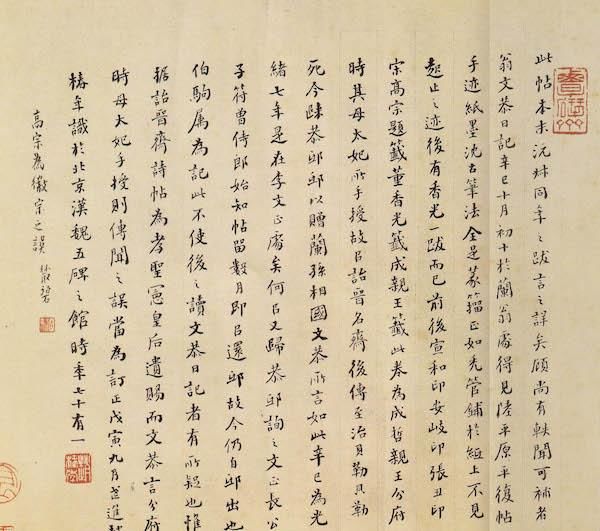 此帖本末沅叔同年之跋言之詳矣顧尚有軼聞可補者
翁文恭日記辛巳十月初十於蘭翁處得見陸平原平復帖
手迹紙墨沈古筆法全是篆籀正如禿管鋪於紙上不見
起止之迹後有香光一跋而已前後宣和印安岐印張丑印
宋高宗題籤董香光籤成親王籤此卷為成哲親王分府
時其母太妃所手授故以詒晉名齋後傳至治貝勒貝勒
死今恭邸邸以贈蘭孫相國文恭所言如此辛巳為光
緒七年是在李文正處矣何以又歸恭邸詢之文正長公
子符曾侍郎始知帖留數月即以還邸故今仍自邸出也
伯駒属為記此不使後之讀文恭日記者有所疑也惟
据詒晉齋詩帖為孝聖憲皇后遺賜而文恭言分府
時母太妃手授則傳聞之誤當為訂正戊寅九月武進趙
椿年識於北京漢魏五碑之館時年七十有一
高宗為徽宗之誤